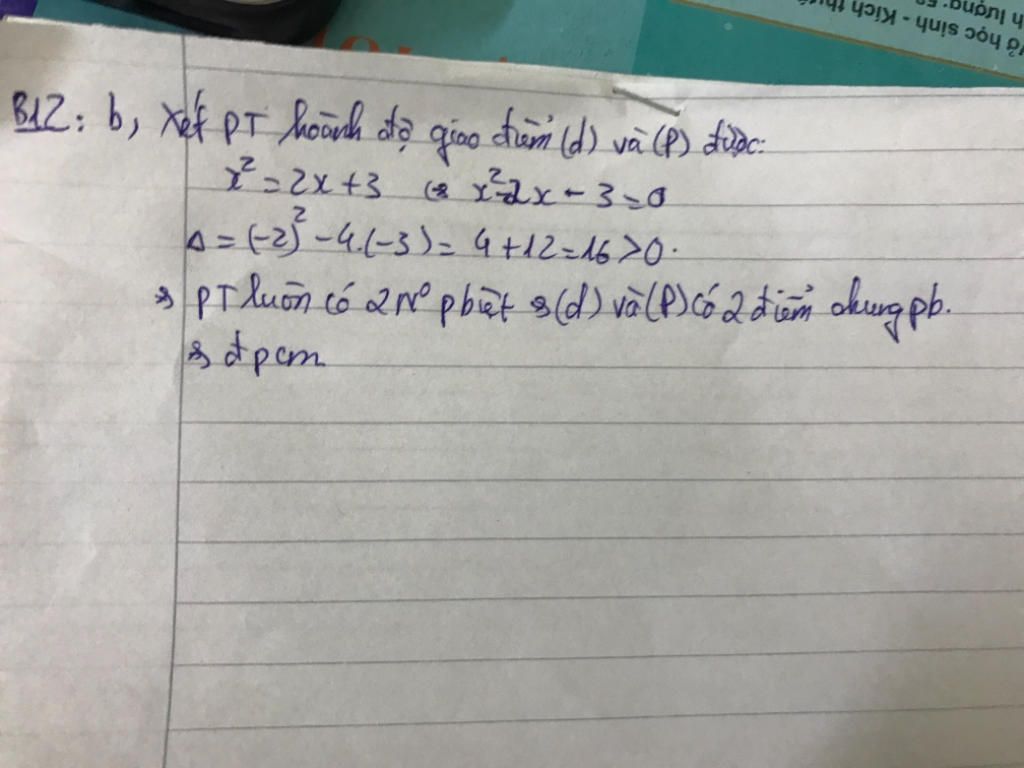 B12: b, Xét PT hoành độ giao điểm (d) và (P) được:
x² = 2x + 3 ⇔ x² - 2x - 3 = 0
Δ = (-2)² - 4.(-3) = 4 + 12 = 16 > 0.
⇒ PT luôn có 2 N⁰ pbiệt ⇒ (d) và (P) có 2 điểm chung pb.
⇒ đpcm
ở học sinh - Kích th
h lượng: 5